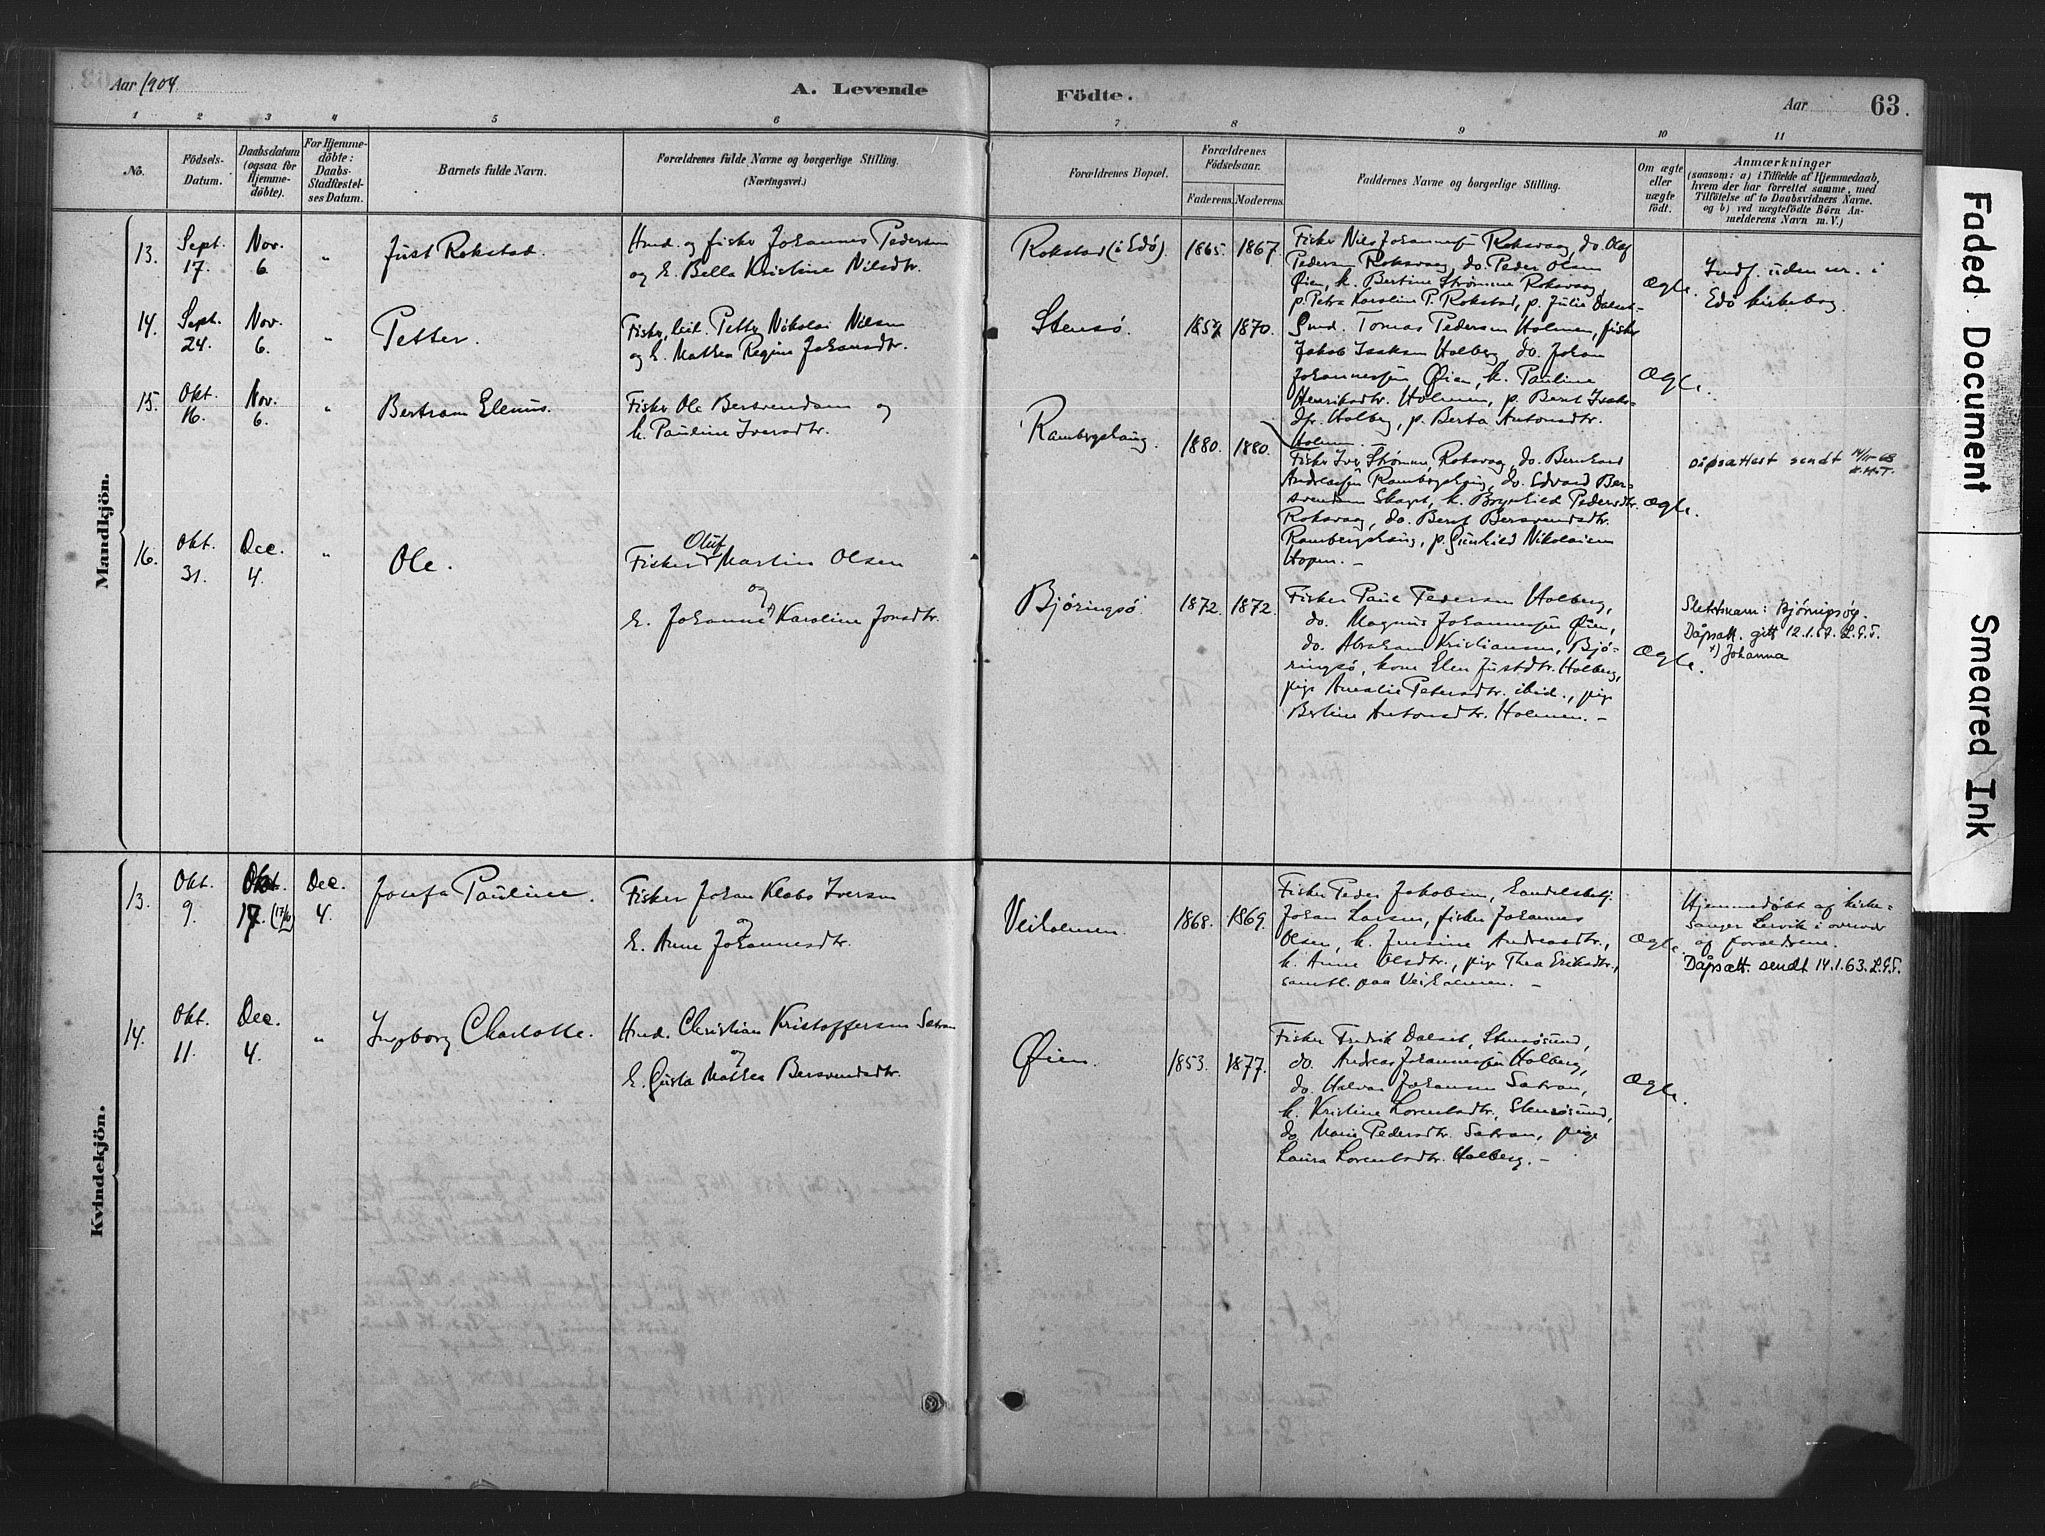 Aar 1904
A. Levende
Födte.
Aar
63.
1 2 3 4 5 6 7 8 9 10 11
No.
Födsels-
Datum.
Daabsdatum
(ogsaa for
Hjemme-
döbte).
For Hjemme-
döbte:
Daabs-
Stadfæstel-
ses Datum.
Barnets fulde Navn.
Forældrenes fulde Navne og borgerlige Stilling.
(Næringsvei.)
Forældrenes Bopæl.
Forældrenes
Födselsaar.
Faderens. Moderens.
Faddernes Navne og borgerlige Stilling.
Om ægte
eller
uægte
födt.
Anmærkninger
(saasom: a) i Tilfælde af Hjemmedaab,
hvem der har forrettet samme, med
Tilföielse af to Daabsvidners Navne.
og b) ved uægtefödte Börn An-
melderens Navn m. V.)
Mandkjön.
13.
Sept.
17.
Nov.
6.
"
Just Rokstad.
Hmd. og fisker Johannes Pedersen
og h. Bella Kristine Nilsdtr.
Rokstad (i Edö).
1865. 1867.
Fisker Nils Johannesen Roksvaag, do. Olaf
Pedersen Roksvaag, do. Peder Olsen
Øien, k. Bertine Strømme Roksvaag,
p. Petra Karoline P. Rokstad, p. Julie Dalset.
Ægte.
Indf. uden nr. i
Edö kirkebog.
14.
Sept.
24.
Nov.
6.
"
Petter.
Fisker, Petter Nikolai Nilsen
og h. Mathea Regine Johansdtr.
Stensö.
1857 1870.
Tomas Pedersen Holmen, fisker
Jakob Isaksen Holberg, do. Johan
Johannessen Øien, k. Pauline
Henriksdtr. Holmen, p. Berit Isaks-
dtr. Holberg, p. Berta Antonsdtr.
Holmen.
Ægte.
15.
Okt.
16.
Nov.
6.
"
Bertram Elenius.
Fisker Ole Bersvendsen og
h. Pauline Iversdtr.
Rambergshaug.
1880. 1880.
Fisker Iver Strømmen, Roksvaag, do. Bernhard
Andreassen Rambergshaug, do. Edvard Ber-
svendsen Skaget, k. Brynhild Pedersdtr.
Roksvaag, do. Berit Bersvendsdtr.
Rambergshaug, p. Gunhild Nikolaisen
Hopen. –
Ægte.
Dåpsattest sendt
K.H.T.
16.
Okt.
31.
Dec.
4.
"
Ole.
Oluf
Fisker Martin Olsen
og
h. Johanne x) Karoline Jonsdtr.
Björingsö.
1872. 1872.
Fisker Paul Pedersen Holberg,
do. Magnus Johannessen Øien,
do. Abraham Kristiansen, Bjö-
ringsö, kone Elen Justdtr. Holberg,
pige Amalie Petersdtr. ibid., pige
Berline Antonsdtr. Holmen. –
Ægte.
Slektsnam: Bjørningsøy.
Dåpsatt. gitt 12.1.62. L.G.S.
x) Johanna
Kvindekjön.
13.
Okt.
9.
Okt.
17.
Dec.
4.
Josefa Pauline.
Fisker Johan Klabo Iversen
og
h. Anne Johannesdtr.
Veiholmen.
1868. 1869.
Fisker Peder Jakobsen, handelsbetj.
Johan Larsen, fisker Johannes
Olsen, k. Jensine Andreasdtr.,
k. Anne Olsdtr., pige Thea Eriksdtr.,
samtl. paa Veiholmen. –
Ægte.
Hjemmedøbt af kirke-
sanger Lervik i overvær
af forældrene.
Dåpsatt. sendt 14.1.63. L.G.S.
14.
Okt.
11.
Dec.
4.
"
Ingeborg Charlotte.
Hmd. Christian Kristoffersen Sætran
og
h. Gusta Mathea Bersvendsdtr.
Øien.
1853. 1877.
Fisker Fredrik Dalset, Stensösund,
do. Andreas Johannessen Holberg,
do. Halvor Johansen Sætran,
k. Kristine Lorentsdtr, Stensösund,
do. Marie Pedersdtr. Sætran, pige
Laura Lorentsdtr. Holberg. –
Ægte.
Faded Document
Smeared Ink